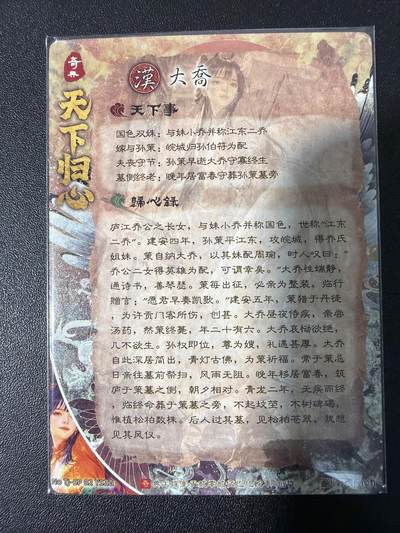 奇兵
天下归心
漢 大喬
天下事
国色双姝：与妹小乔并称江东二乔
嫁与孙策：皖城归孙伯符为配
夫丧守节：孙策早逝大乔守寡终生
墓侧终老：晚年居富春守葬孙策墓旁
歸心錄
庐江乔公之长女，与妹小乔并称国色，世称“江东
二乔”。建安四年，孙策平江东，攻皖城，得乔氏
姐妹。策自纳大乔，以其妹配周瑜，时人叹曰：“
乔公二女得英雄为配，可谓幸矣。”大乔性端静，
通诗书，善琴瑟。策每出征，必亲为整装，临行
赠言：“愿君早奏凯歌。”建安五年，策猎于丹徒
，为许贡门客所伤，创甚。大乔昼夜侍疾，亲尝
汤药，然策终薨，年二十有六。大乔哀恸欲绝，
几不欲生。孙权即位，尊为嫂，礼遇甚厚。大乔
自此深居简出，青灯古佛，为策祈福。常于策忌
日亲往墓前祭扫，风雨无阻。晚年移居富春，筑
庐于策墓之侧，朝夕相对。青龙二年，无疾而终
，临终命葬于策墓之旁，不起坟茔，不树碑碣，
惟植松柏数株。后人过其墓，见松柏苍翠，犹想
见其风仪。